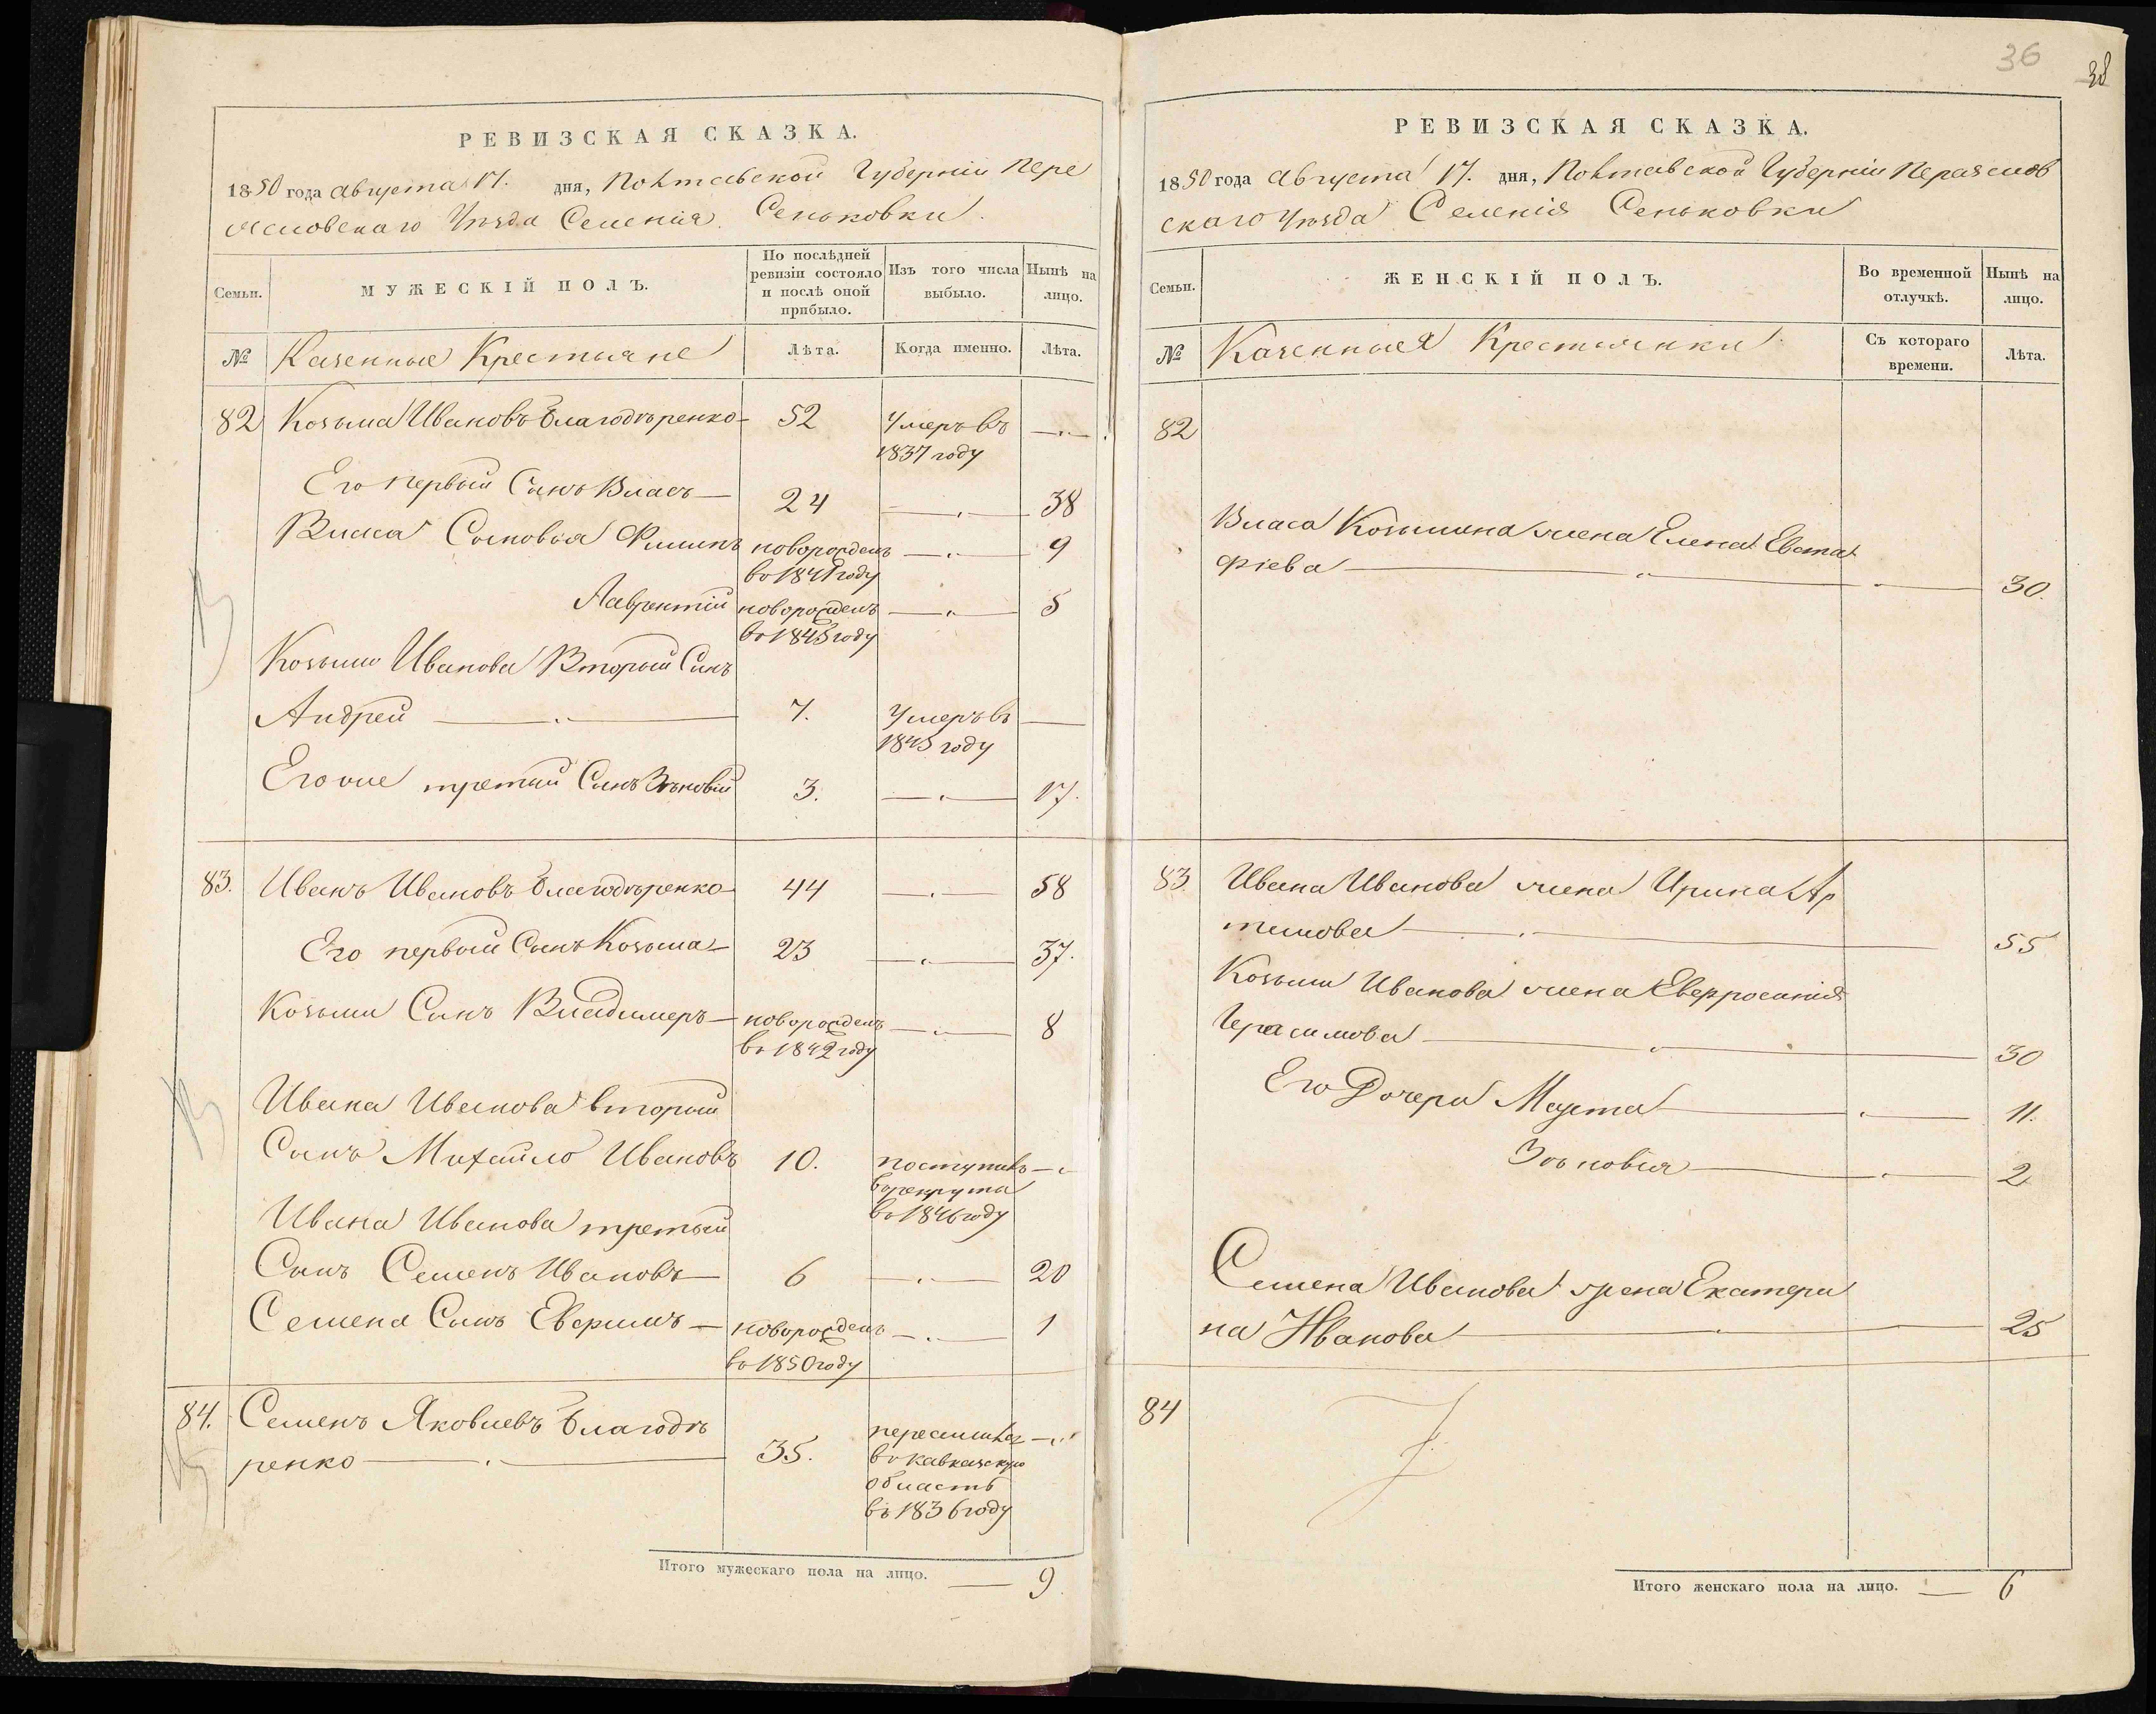 36
38
РЕВИЗСКАЯ СКАЗКА.
1850 года августа 17. дня, Полтавской Губерніи Пере
яславскаго Уѣзда Селенія Сеньковки.
Семьи.
МУЖЕСКІЙ ПОЛЪ.
По послѣдней ревизіи состояло и послѣ оной прибыло.
Изъ того числа выбыло.
Нынѣ на лицо.
№
Казенные Крестьяне
Лѣта.
Когда именно.
Лѣта.
82 Козьма Ивановъ Благодѣренко 52 Умеръ въ 1837 году
Его первый Сынъ Власъ 24 38
Власа Сыновья Филипъ новорожденъ въ 1841 году 9
Лаврентій новорожденъ въ 1845 году 5
Козьмы Иванова Вторый Сынъ
Андрей 7. Умеръ въ 1845 году
Его же третій Сынъ Зѣновій 3. 17.
83. Иванъ Ивановъ Благодѣренко 44 58
Его первый Сынъ Козьма 23 37.
Козьмы Сынъ Владимеръ новорожденъ въ 1842 году 8
Ивана Иванова вторый
Сынъ Михайло Ивановъ 10. поступилъ в рекруты въ 1846 году
Ивана Иванова третый
Сынъ Семенъ Ивановъ 6 20
Семена Сынъ новорожденъ въ 1850 году 1
84. Семенъ Яковлевъ Благодѣ
ренко 35. переселился въ Кавказскую область въ 1836 году
Итого мужескаго пола на лицо. 9
РЕВИЗСКАЯ СКАЗКА.
1850 года августа 17. дня, Полтавской Губерніи Переяслов
скаго Уѣзда Селенія Сеньковки
Семьи.
ЖЕНСКІЙ ПОЛЪ.
Во временной отлучкѣ.
Нынѣ на лицо.
№
Казенныя Крестьянки
Съ котораго времени.
Лѣта.
82
Власа Козьмина жена Елена Евста
фіева 30.
83. Ивана Иванова жена Ирина Ар
тимова 55
Козьмы Иванова жена Евфросинія
Герасимова 30
Его Дочери Марта 11.
Зѣновія 2
Семена Иванова жена Екатери
на Иванова 25
84
Итого женскаго пола на лицо. 6